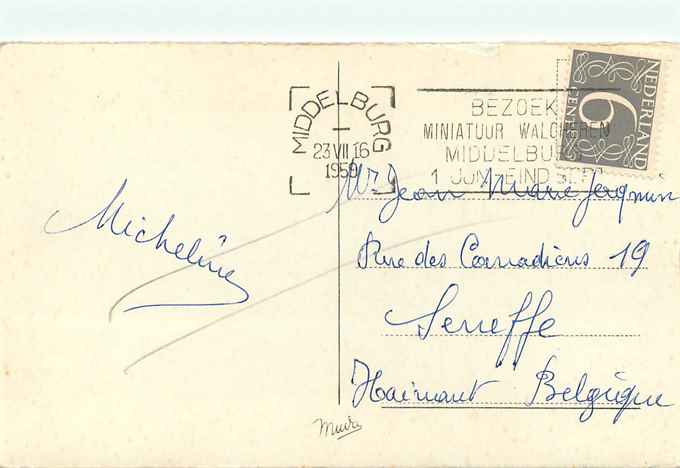 MIDDELBURG
1
23 VII 16
1959
BEZOEK
MINIATUUR WALCHEREN
MIDDELBURG
1 JUNI-EIND SEPT
NEDERLAND
6
CENT
Micheline
Mr Jean Marie Jacqmin
Rue des Canadiens 19
Seneffe
Hainaut Belgique